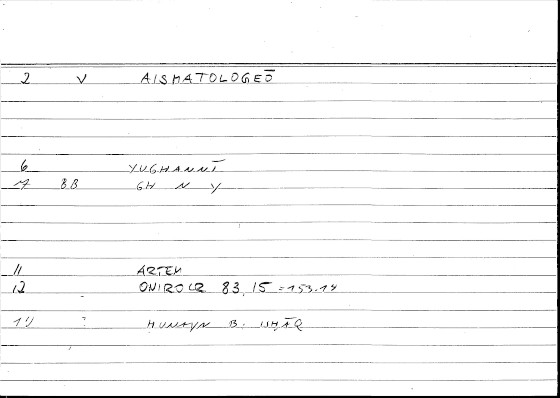 2 V AISMATOLOGEŌ
6 YUGHANNĪ
7 BB GH N Y
11 ARTEM
12 ONIROCR 83,15 = 153.14
14 ḤUNAYN B. ISḤĀQ